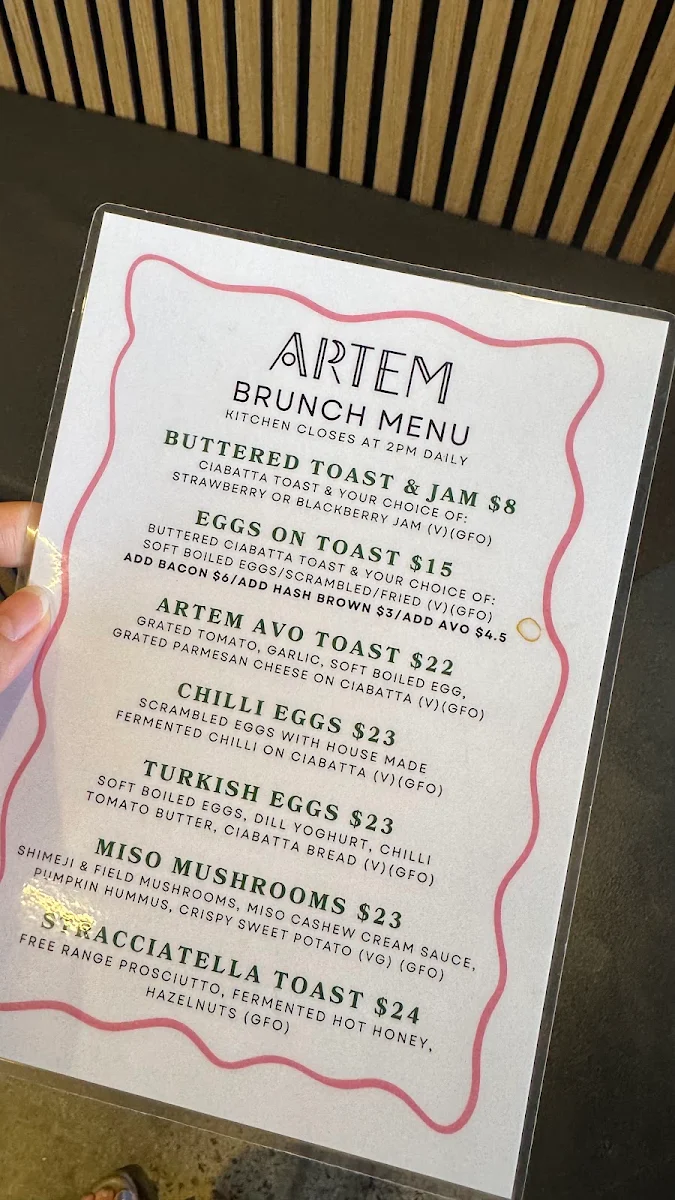 ARTEM
BRUNCH MENU
KITCHEN CLOSES AT 2PM DAILY
BUTTERED TOAST & JAM $8
CIABATTA TOAST & YOUR CHOICE OF:
STRAWBERRY OR BLACKBERRY JAM (V)(GFO)
EGGS ON TOAST $15
BUTTERED CIABATTA TOAST & YOUR CHOICE OF:
SOFT BOILED EGGS/SCRAMBLED/FRIED (V)(GFO)
ADD BACON $6/ADD HASH BROWN $3/ADD AVO $4.5
ARTEM AVO TOAST $22
GRATED TOMATO, GARLIC, SOFT BOILED EGG,
GRATED PARMESAN CHEESE ON CIABATTA (V)(GFO)
CHILLI EGGS $23
SCRAMBLED EGGS WITH HOUSE MADE
FERMENTED CHILLI ON CIABATTA (V)(GFO)
TURKISH EGGS $23
SOFT BOILED EGGS, DILL YOGHURT, CHILLI
TOMATO BUTTER, CIABATTA BREAD (V)(GFO)
MISO MUSHROOMS $23
SHIMEJI & FIELD MUSHROOMS, MISO CASHEW CREAM SAUCE,
PUMPKIN HUMMUS, CRISPY SWEET POTATO (VG) (GFO)
STRACCIATELLA TOAST $24
FREE RANGE PROSCIUTTO, FERMENTED HOT HONEY,
HAZELNUTS (GFO)